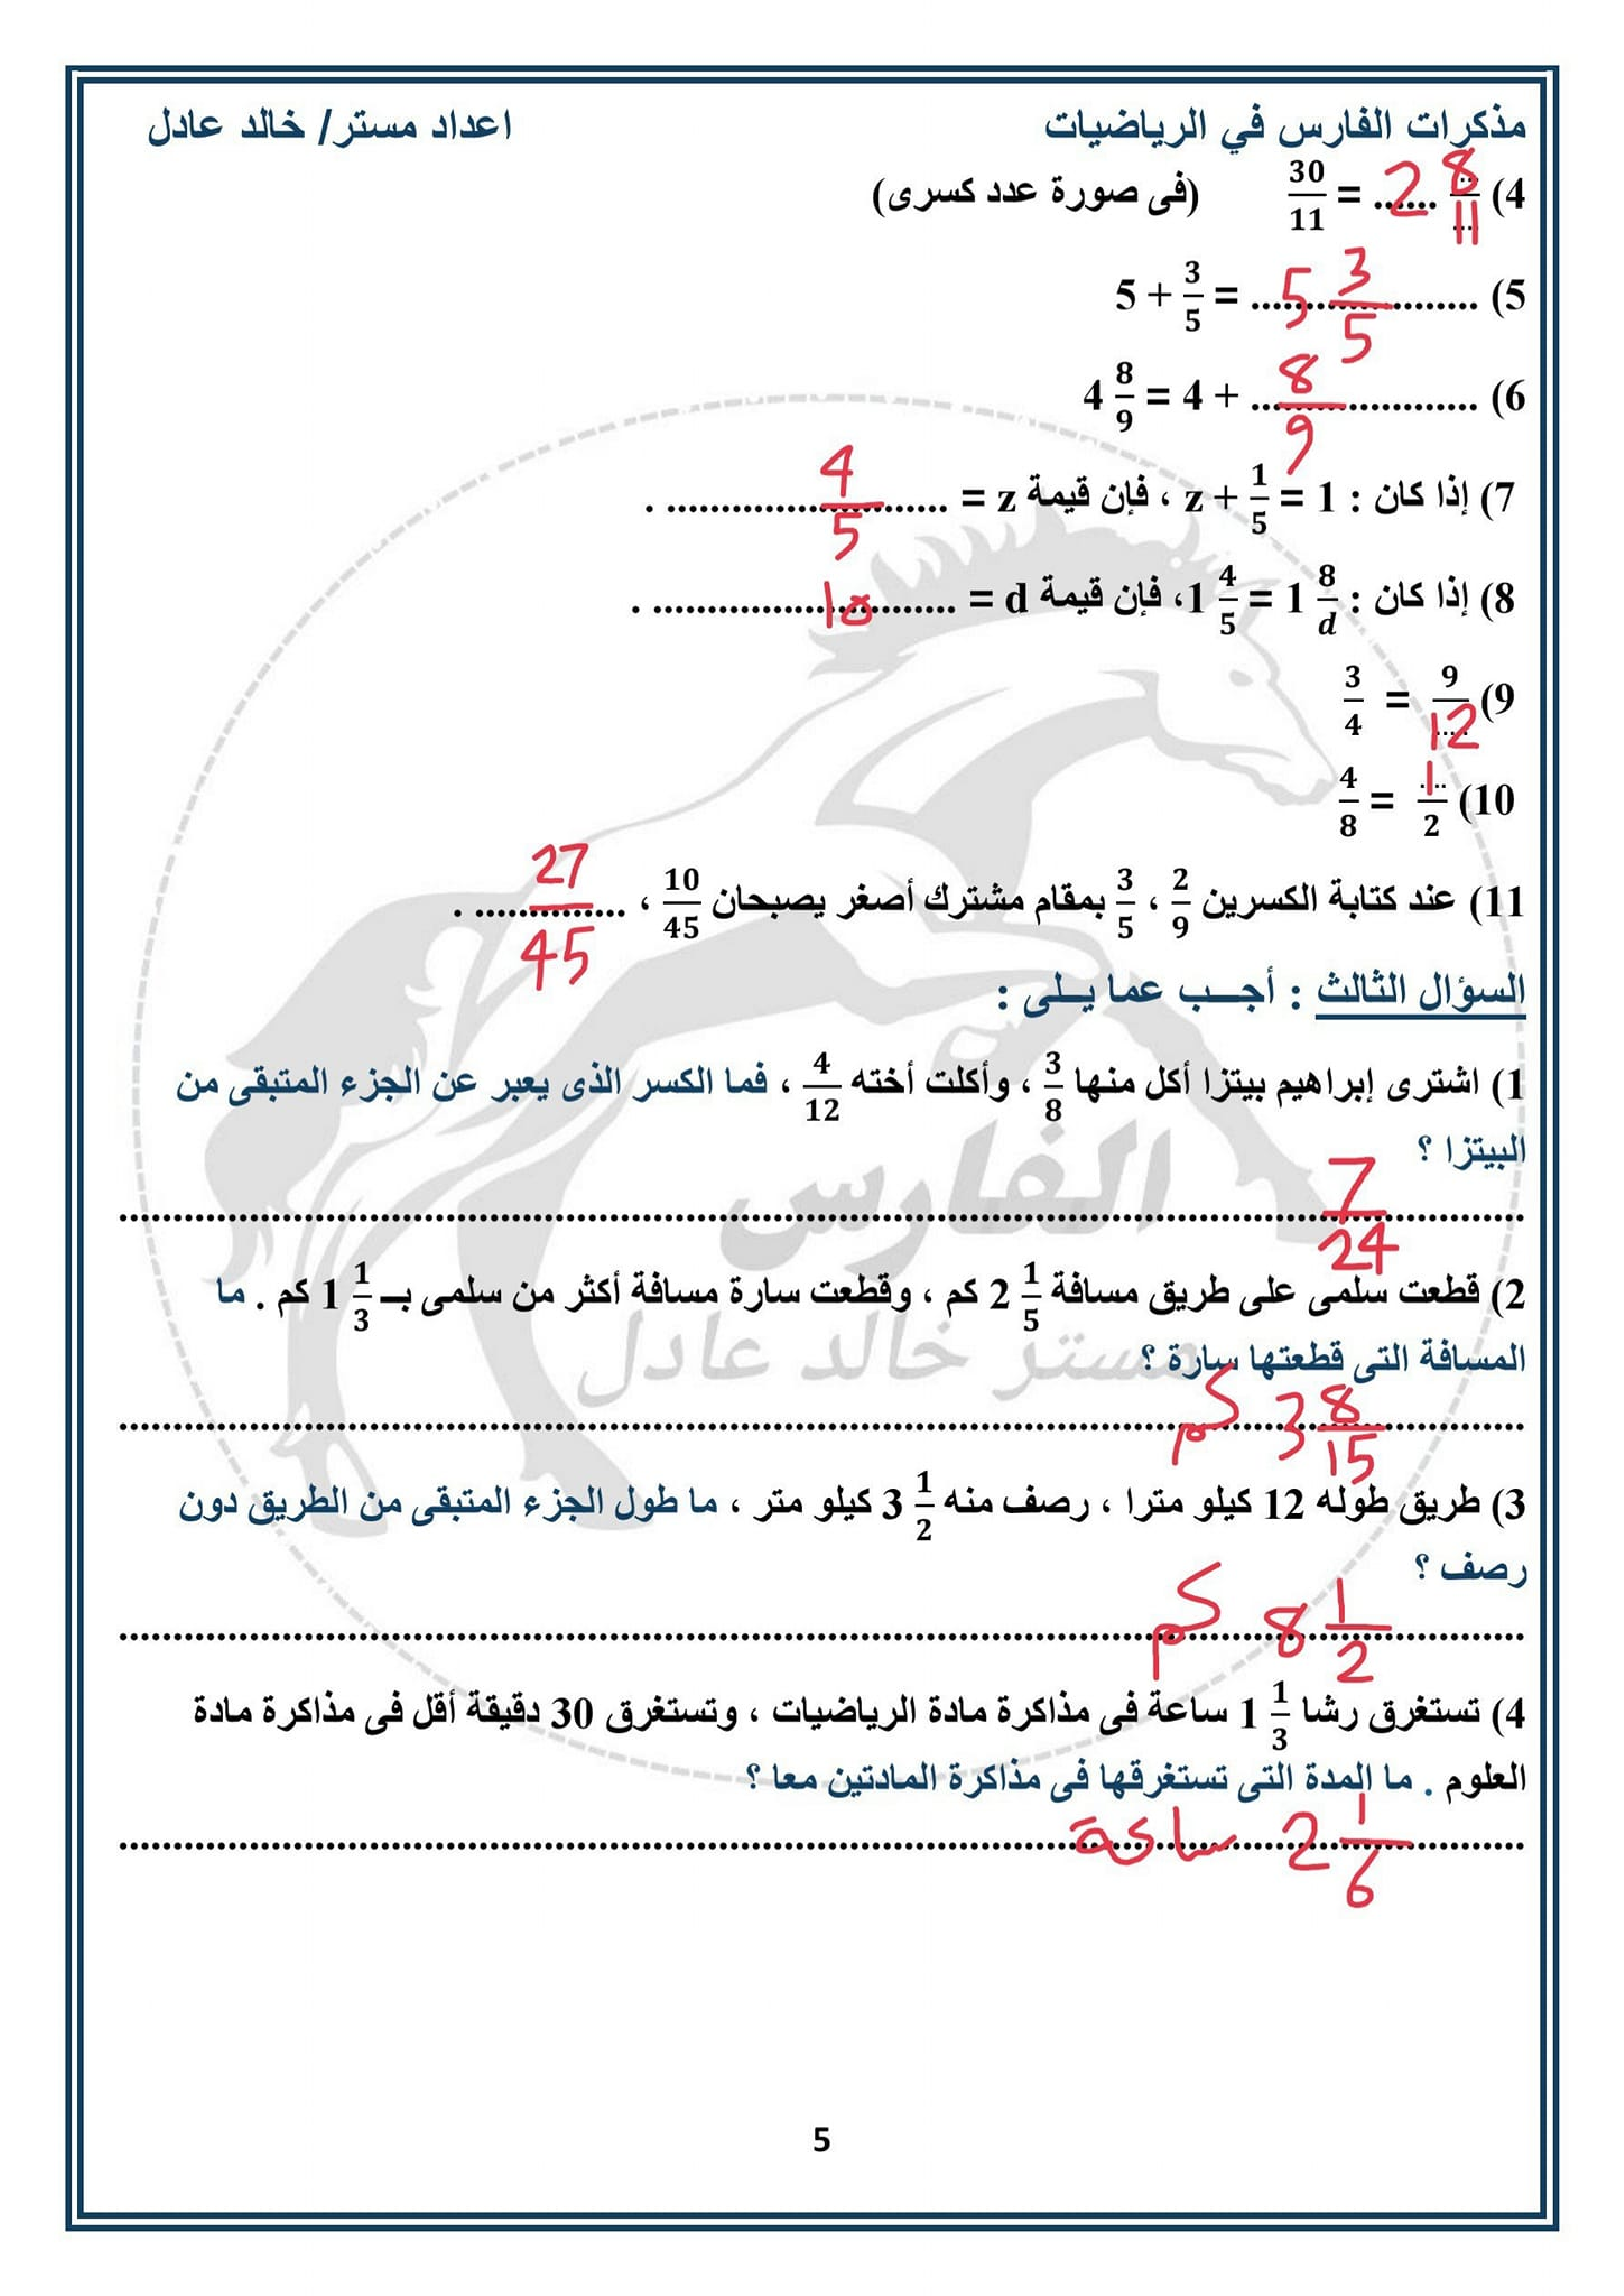 مذكرات الفارس في الرياضيات اعداد مستر/ خالد عادل
4) 30/11 = ...... 2 8/11 (فى صورة عدد كسرى)
5) 5 + 3/5 = ..................... 5 3/5
6) 4 8/9 = 4 + ..................... 8/9
7) إذا كان : z + 1/5 = 1 ، فإن قيمة z = .......................... . 4/5
8) إذا كان : 1 4/5 = 1 8/d، فإن قيمة d = ............................ . 10
9) 3/4 = 9/12
10) 4/8 = 1/2
11) عند كتابة الكسرين 2/9 ، 3/5 بمقام مشترك أصغر يصبحان 10/45 ، .............. . 27/45
السؤال الثالث : أجـــب عما يــلى :
1) اشترى إبراهيم بيتزا أكل منها 3/8 ، وأكلت أخته 4/12 ، فما الكسر الذى يعبر عن الجزء المتبقى من
البيتزا ؟
7/24
2) قطعت سلمى على طريق مسافة 2 1/5 كم ، وقطعت سارة مسافة أكثر من سلمى بــ 1 1/3 كم . ما
المسافة التى قطعتها سارة ؟
3 8/15 كم
3) طريق طوله 12 كيلو مترا ، رصف منه 3 1/2 كيلو متر ، ما طول الجزء المتبقى من الطريق دون
رصف ؟
8 1/2 كم
4) تستغرق رشا 1 1/3 ساعة فى مذاكرة مادة الرياضيات ، وتستغرق 30 دقيقة أقل فى مذاكرة مادة
العلوم . ما المدة التى تستغرقها فى مذاكرة المادتين معا ؟
2 1/6 ساعة
الفارس
مستر خالد عادل
5